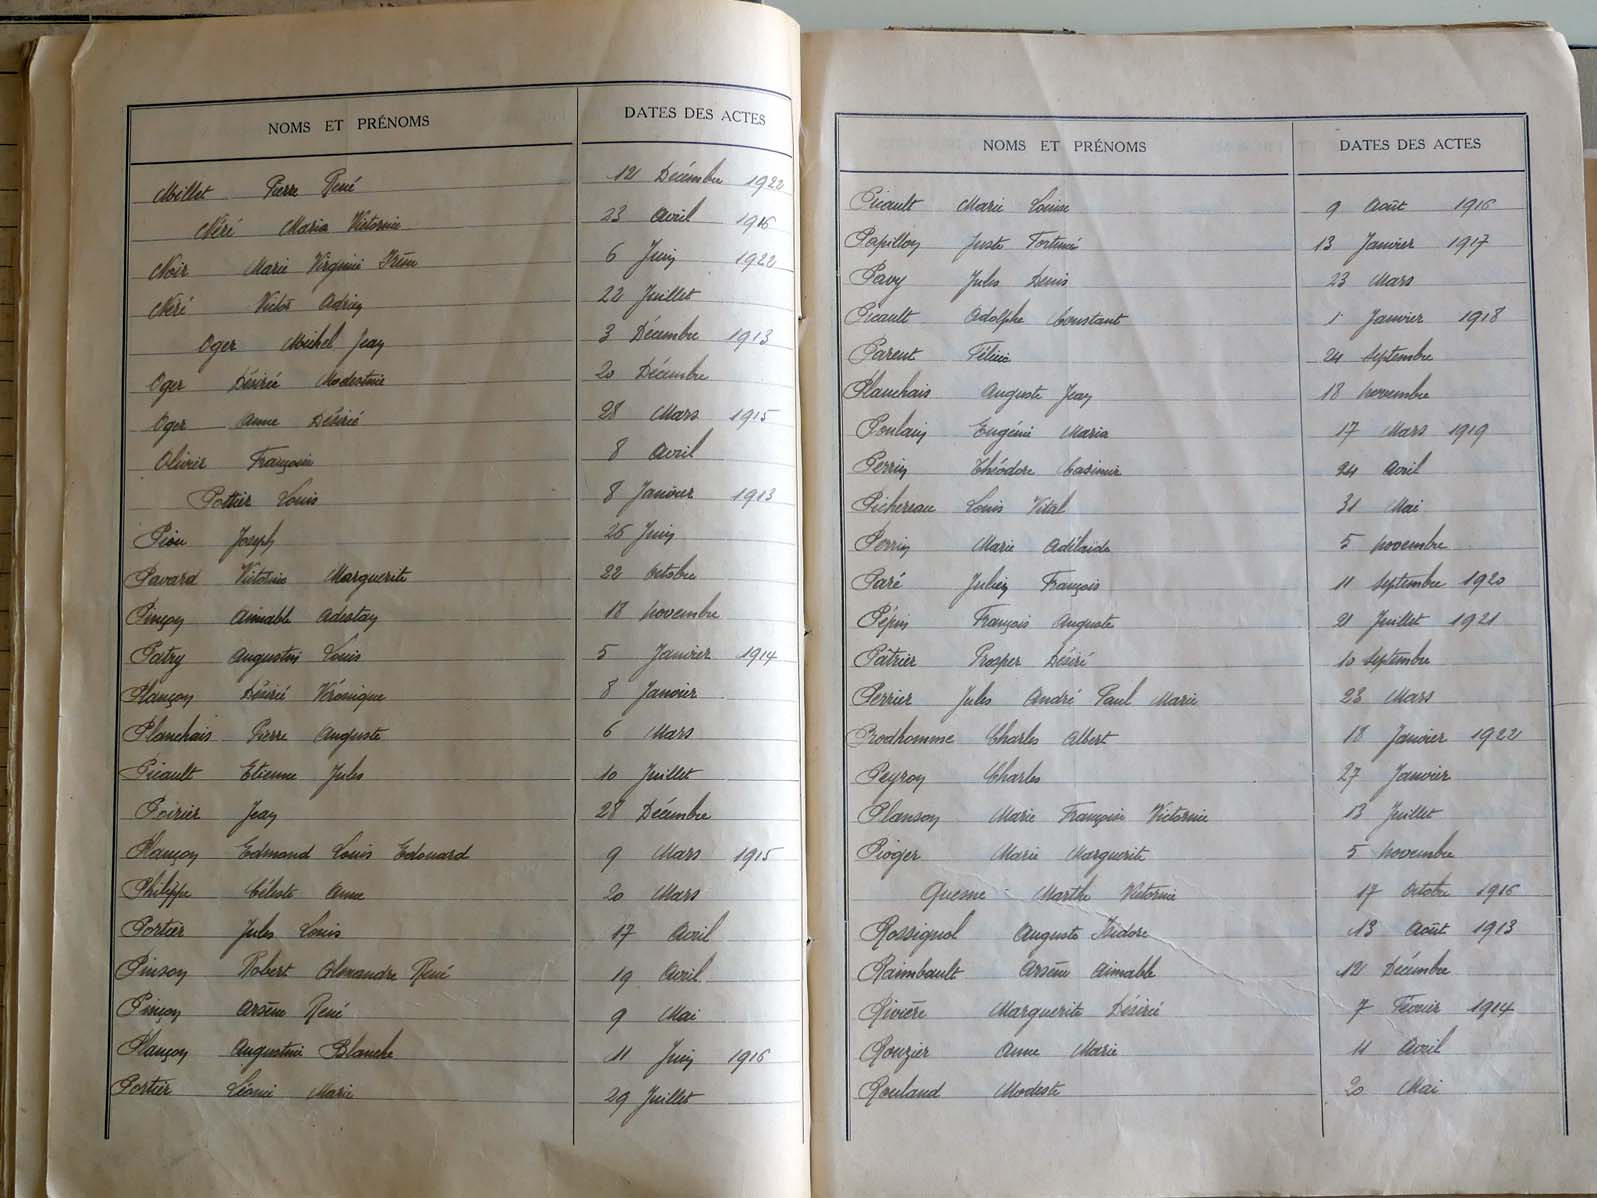 NOMS ET PRÉNOMS DATES DES ACTES
Millet Pierre René 12 Décembre 1922
Néré Maria Victorine 23 Avril 1916
Noir Marie Virginie 6 Juin 1922
Néré Victor Adrien 22 Juillet
Oger Michel Jean 3 Décembre 1913
Oger Désirée Modestine 20 Décembre
Oger Anne Désirée 28 Mars 1915
Olivier Françoise 8 Avril
Pottier Louis 8 Janvier 1913
Piou Joseph 26 Juin
Pavard Victorine Marguerite 22 Octobre
Pinçon Aimable 18 Novembre
Patry Augustin Louis 5 Janvier 1914
Plançon Désirée Véronique 8 Janvier
Planchais Pierre Auguste 6 Mars
Picault Etienne Jules 10 Juillet
Poirier Jean 28 Décembre
Plançon Edmond Louis Edouard 9 Mars 1915
Philippe Céleste Anne 20 Mars
Portier Jules Louis 17 Avril
Pinson Robert Alexandre René 19 Avril
Pinçon Arsène René 9 Mai
Plançon Augustine Blanche 11 Juin 1916
Portier Léonie Marie 29 Juillet
NOMS ET PRÉNOMS DATES DES ACTES
Picault Marie Louise 9 Août 1916
Papillon Juste Fortuné 13 Janvier 1917
Pavy Jules Denis 23 Mars
Picault Adolphe Constant 1 Janvier 1918
Parent Félicie 24 Septembre
Planchais Auguste Jean 18 Novembre
Poulain Eugénie Maria 17 Mars 1919
Perrin Théodore Casimir 24 Avril
Pichereau Louis Vital 31 Mai
Perrin Marie Adélaïde 5 Novembre
Paré Julien François 11 Septembre 1920
Pépin François Auguste 21 Juillet 1921
Pâtrier Prosper Désiré 10 Septembre
Perrier Jules André Paul Marie 23 Mars
Prodhomme Charles Albert 18 Janvier 1922
Peyron Charles 27 Janvier
Planson Marie Françoise Victorine 13 Juillet
Pioger Marie Marguerite 5 Novembre
Quesne Marthe Victorine 17 Octobre 1916
Rossignol Auguste Isidore 13 Août 1913
Raimbault Arsène Aimable 12 Décembre
Rivière Marguerite Désirée 7 Février 1914
Rouzier Anne Marie 11 Avril
Rouland Modeste 20 Mai